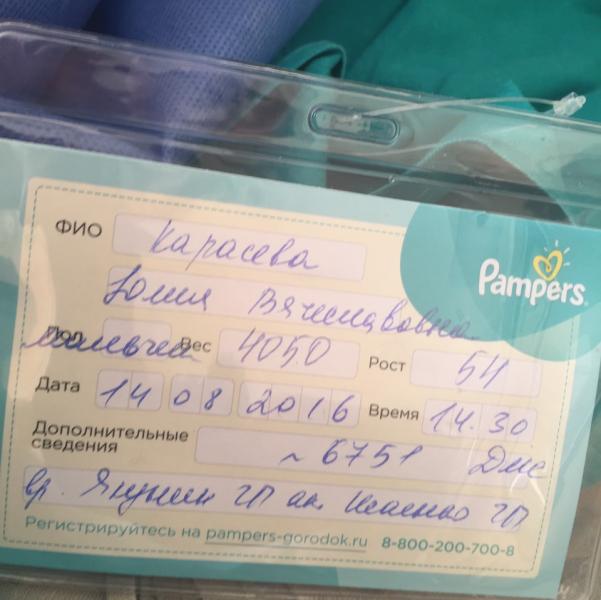 Pampers
ФИО Карасева
Юлия Вячеславовна
Пол мальчик Вес 4050 Рост 54
Дата 14 08 2016 Время 14.30
Дополнительные сведения ~ 6751 ДМС
вр. ГП ак. ГП
Регистрируйтесь на pampers-gorodok.ru 8-800-200-700-8